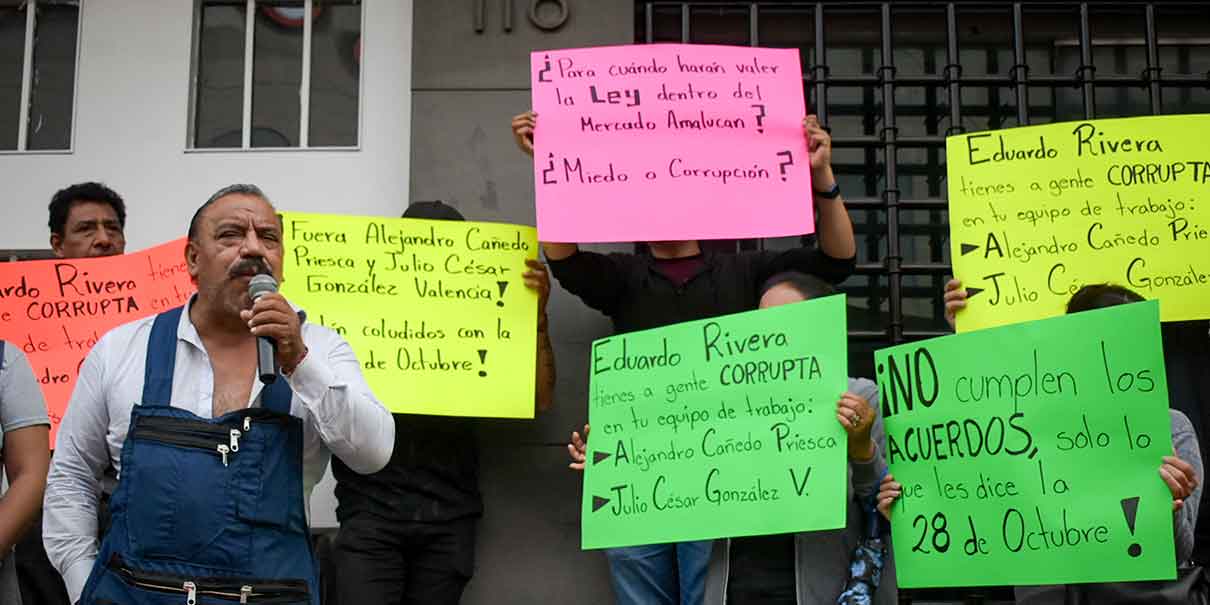 118
¿Para cuándo harán valer
la Ley dentro del
Mercado Amalucan?
¿Miedo o Corrupción?
Eduardo Rivera
tienes a gente CORRUPTA
en tu equipo de trabajo:
Alejandro Cañedo Priesca
Julio César González
Fuera Alejandro Cañedo
Priesca y Julio César
González Valencia!
coludidos con la
de Octubre!
Rivera
tienes
CORRUPTA
Eduardo Rivera
tienes a gente CORRUPTA
en tu equipo de trabajo:
Alejandro Cañedo Priesca
Julio César González V.
¡NO cumplen los
ACUERDOS, solo lo
que les dice la
28 de Octubre!